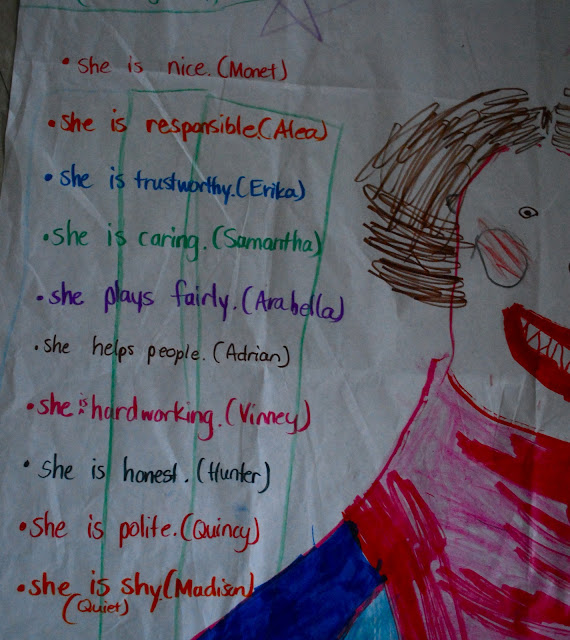 • she is nice. (Monet)
• she is responsible. (Alea)
• she is trustworthy. (Erika)
• she is caring. (Samantha)
• she plays fairly. (Arabella)
• she helps people. (Adrian)
• she is hardworking. (Vinney)
• she is honest. (Hunter)
• she is polite. (Quincy)
• she is shy. (Madison)
(Quiet)